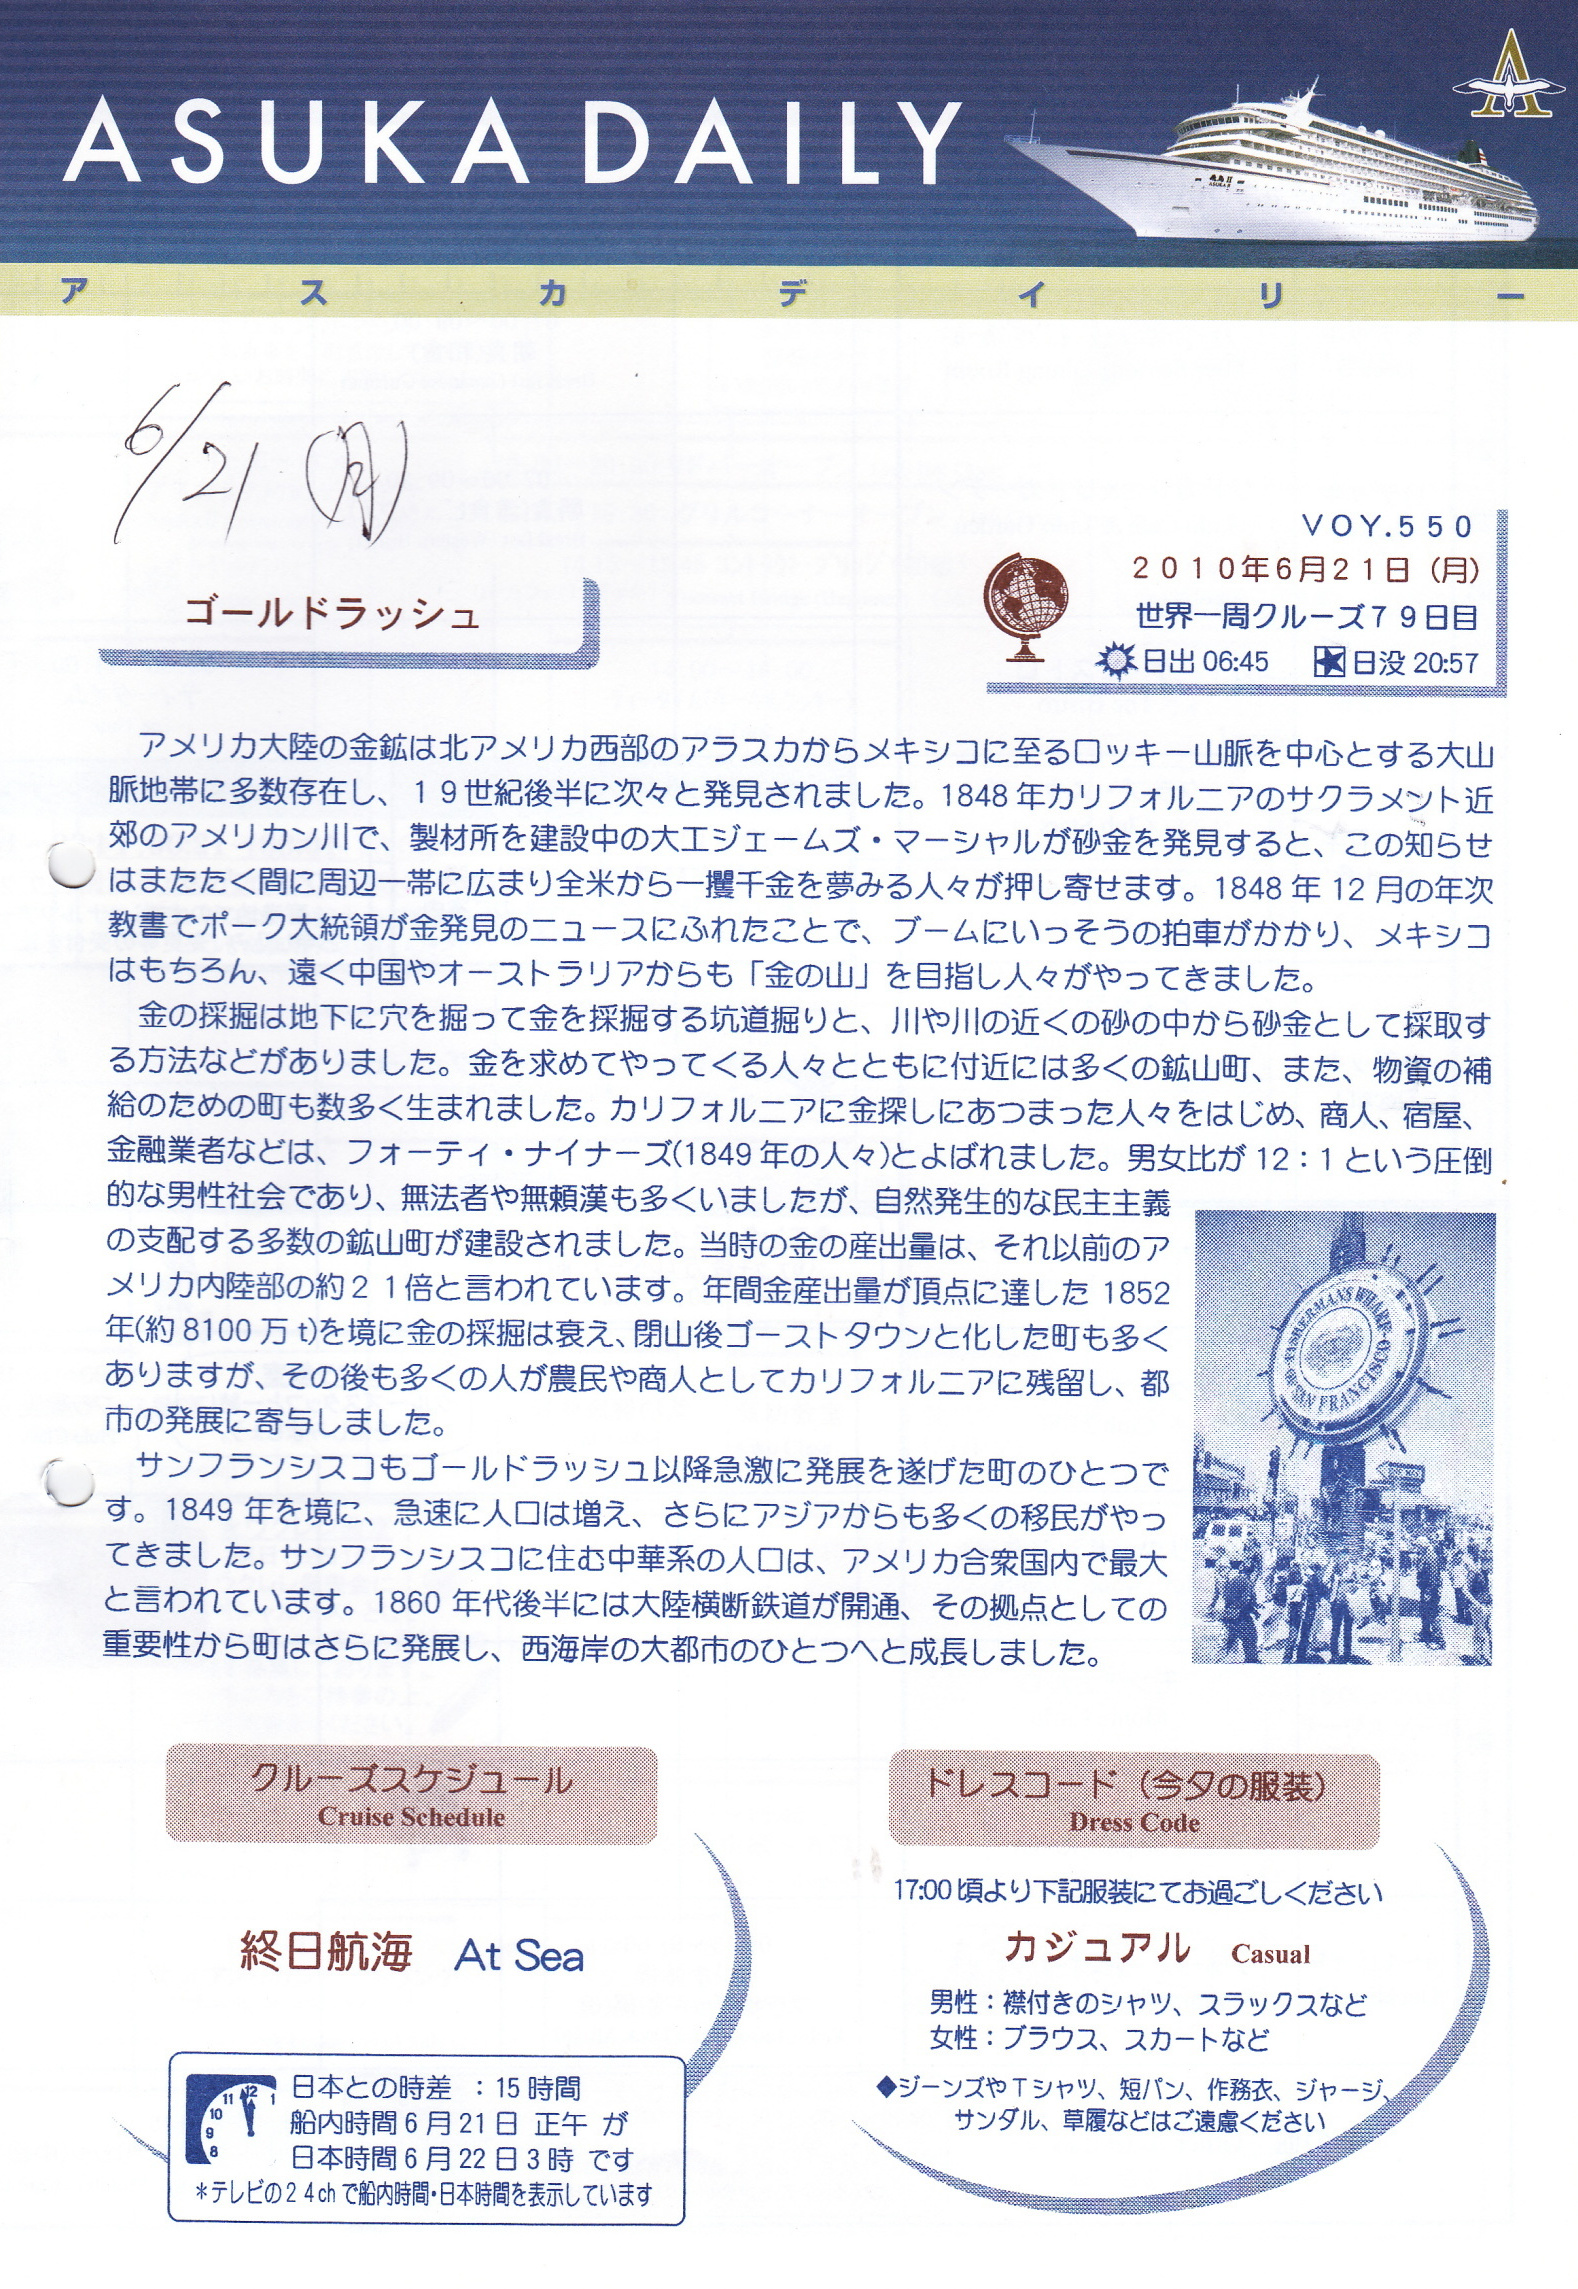 ASUKA DAILY
飛鳥II
ASUKA II
アスカデイリー
6/21(月)
VOY.550
2010年6月21日(月)
世界一周クルーズ79日目
日出 06:45 日没 20:57
ゴールドラッシュ
アメリカ大陸の金鉱は北アメリカ西部のアラスカからメキシコに至るロッキー山脈を中心とする大山
脈地帯に多数存在し、19世紀後半に次々と発見されました。1848年カリフォルニアのサクラメント近
郊のアメリカン川で、製材所を建設中の大工ジェームズ・マーシャルが砂金を発見すると、この知らせ
はまたたく間に周辺一帯に広まり全米から一攫千金を夢みる人々が押し寄せます。1848年12月の年次
教書でポーク大統領が金発見のニュースにふれたことで、ブームにいっそうの拍車がかかり、メキシコ
はもちろん、遠く中国やオーストラリアからも「金の山」を目指し人々がやってきました。
金の採掘は地下に穴を掘って金を採掘する坑道掘りと、川や川の近くの砂の中から砂金として採取す
る方法などがありました。金を求めてやってくる人々とともに付近には多くの鉱山町、また、物資の補
給のための町も数多く生まれました。カリフォルニアに金探しにあつまった人々をはじめ、商人、宿屋、
金融業者などは、フォーティ・ナイナーズ(1849年の人々)とよばれました。男女比が12:1という圧倒
的な男性社会であり、無法者や無頼漢も多くいましたが、自然発生的な民主主義
の支配する多数の鉱山町が建設されました。当時の金の産出量は、それ以前のア
メリカ内陸部の約21倍と言われています。年間金産出量が頂点に達した1852
年(約8100万t)を境に金の採掘は衰え、閉山後ゴーストタウンと化した町も多く
ありますが、その後も多くの人が農民や商人としてカリフォルニアに残留し、都
市の発展に寄与しました。
サンフランシスコもゴールドラッシュ以降急激に発展を遂げた町のひとつで
す。1849年を境に、急速に人口は増え、さらにアジアからも多くの移民がやっ
てきました。サンフランシスコに住む中華系の人口は、アメリカ合衆国内で最大
と言われています。1860年代後半には大陸横断鉄道が開通、その拠点としての
重要性から町はさらに発展し、西海岸の大都市のひとつへと成長しました。
FISHERMAN'S WHARF
OF SAN FRANCISCO
クルーズスケジュール
Cruise Schedule
終日航海 At Sea
11 12 1
10
9
8
日本との時差 :15時間
船内時間6月21日 正午 が
日本時間6月22日3時 です
*テレビの24chで船内時間・日本時間を表示しています
ドレスコード(今夕の服装)
Dress Code
17:00頃より下記服装にてお過ごしください
カジュアル Casual
男性:襟付きのシャツ、スラックスなど
女性:ブラウス、スカートなど
◆ジーンズやTシャツ、短パン、作務衣、ジャージ、
サンダル、草履などはご遠慮ください